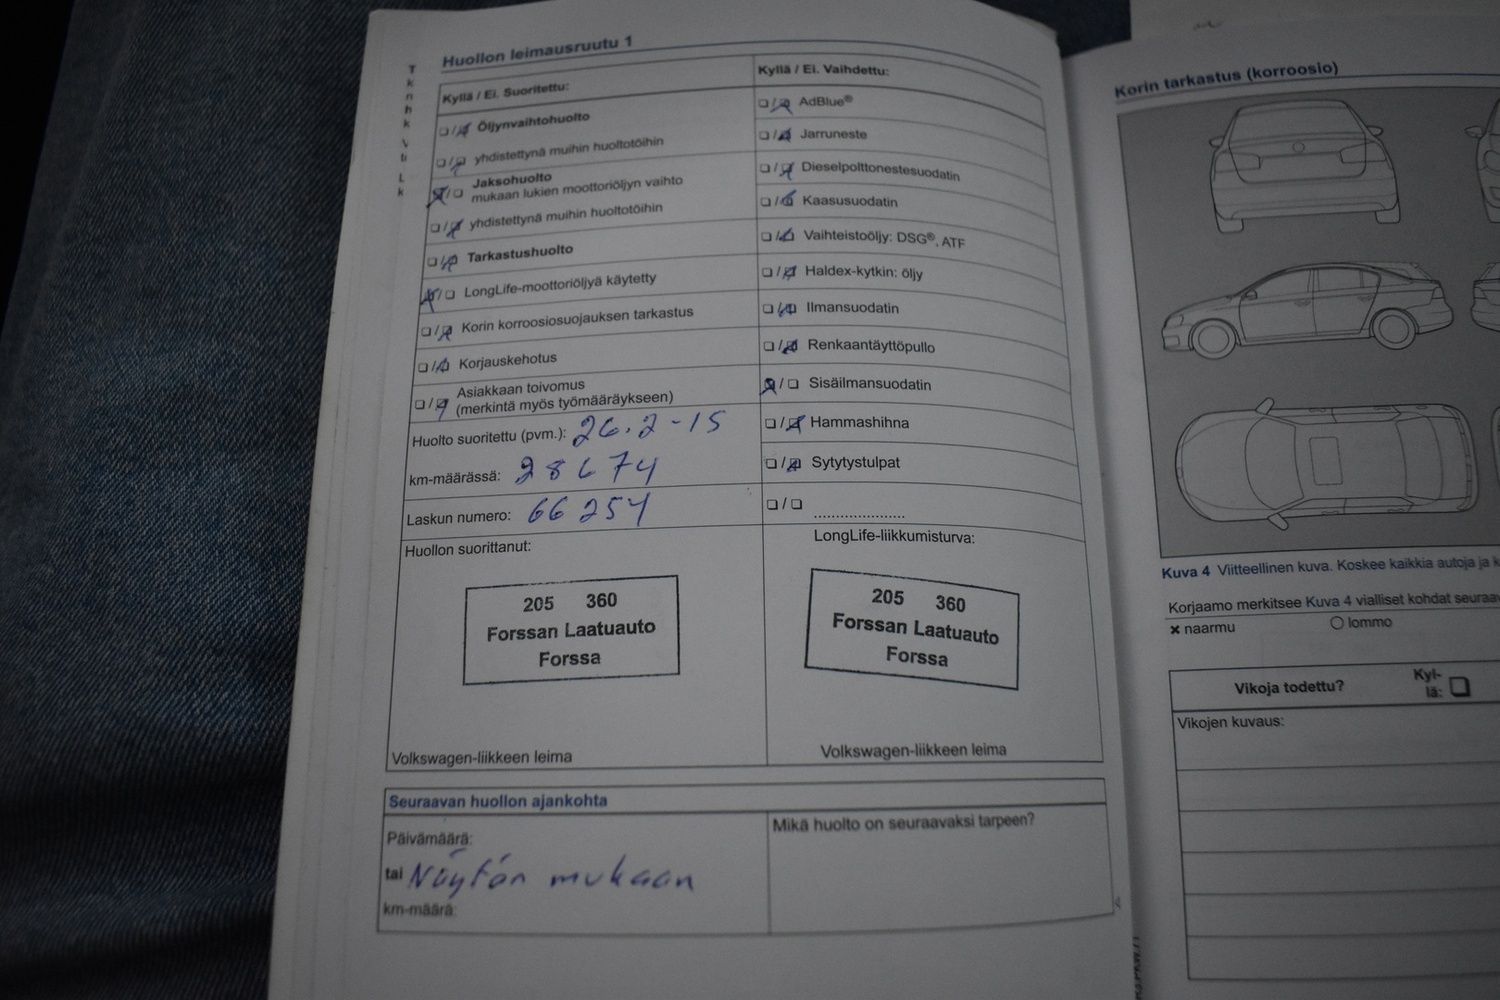 Huollon leimausruutu 1
Kyllä / Ei. Suoritettu:
Öljynvaihtohuolto
yhdistettynä muihin huoltotöihin
Jaksohuolto
mukaan lukien moottoriöljyn vaihto
yhdistettynä muihin huoltotöihin
Tarkastushuolto
LongLife-moottoriöljyä käytetty
Korin korroosiosuojauksen tarkastus
Korjauskehotus
Asiakkaan toivomus
(merkintä myös työmääräykseen)
Huolto suoritettu (pvm.): 26.2-15
km-määrässä: 28674
Laskun numero: 66254
Huollon suorittanut:
205 360
Forssan Laatuauto
Forssa
Volkswagen-liikkeen leima
Kyllä / Ei. Vaihdettu:
AdBlue®
Jarruneste
Dieselpolttonestesuodatin
Kaasusuodatin
Vaihteistoöljy: DSG®, ATF
Haldex-kytkin: öljy
Ilmansuodatin
Renkaantäyttöpullo
Sisäilmansuodatin
Hammashihna
Sytytystulpat
....................
LongLife-liikkumisturva:
205 360
Forssan Laatuauto
Forssa
Volkswagen-liikkeen leima
Seuraavan huollon ajankohta
Päivämäärä:
tai Näytön mukaan
km-määrä:
Mikä huolto on seuraavaksi tarpeen?
Korin tarkastus (korroosio)
Kuva 4 Viitteellinen kuva. Koskee kaikkia autoja ja
Korjaamo merkitsee Kuva 4 vialliset kohdat
× naarmu
○ lommo
Vikoja todettu?
Kyl-
lä:
Vikojen kuvaus: